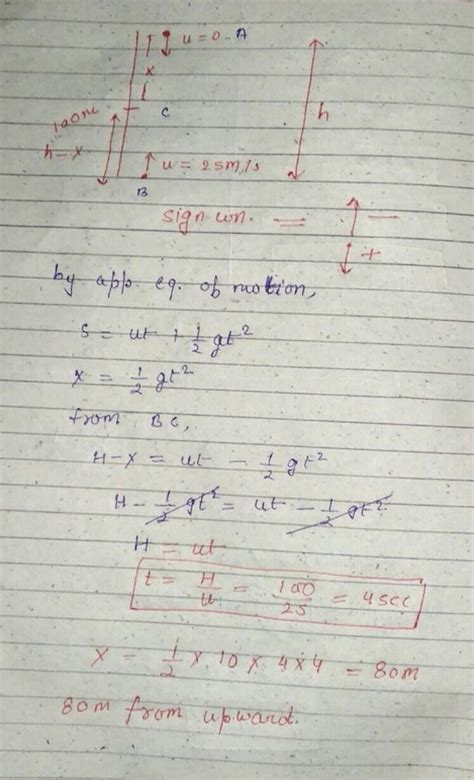 u = 0 A
x
100m
C
h
h - x
u = 25m/s
B
sign con. = ↑ -
↓ +
by app. eq. of motion,
s = ut + 1/2 gt²
x = 1/2 gt²
from BC,
H - x = ut - 1/2 gt²
H - 1/2 gt² = ut - 1/2 gt²
H = ut
t = H/u = 100/25 = 4sec
x = 1/2 x 10 x 4 x 4 = 80m
80m from upward.